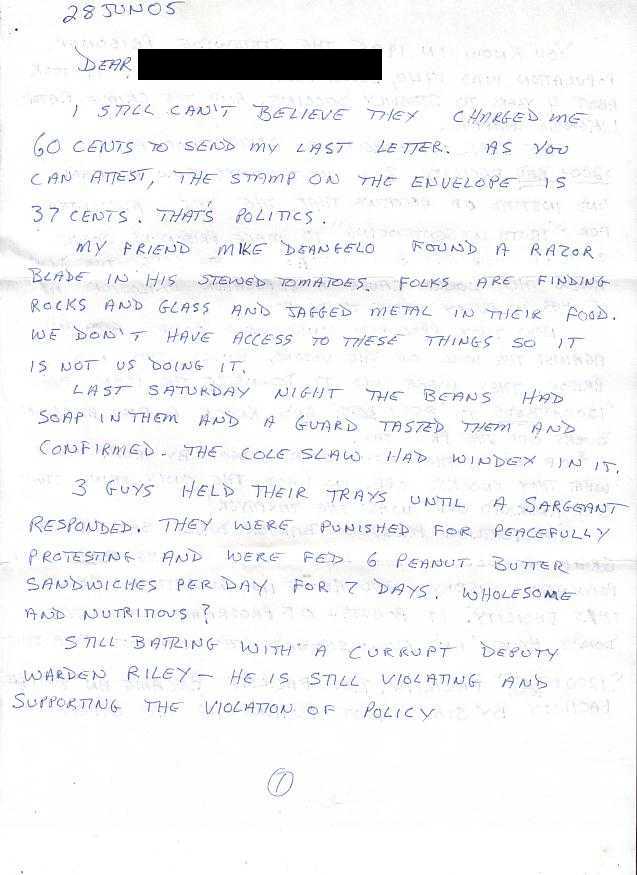 28 JUN 05
DEAR
I STILL CAN'T BELIEVE THEY CHARGED ME
60 CENTS TO SEND MY LAST LETTER. AS YOU
CAN ATTEST, THE STAMP ON THE ENVELOPE IS
37 CENTS. THAT'S POLITICS.
MY FRIEND MIKE DEANGELO FOUND A RAZOR
BLADE IN HIS STEWED TOMATOES. FOLKS ARE FINDING
ROCKS AND GLASS AND JAGGED METAL IN THEIR FOOD.
WE DON'T HAVE ACCESS TO THESE THINGS SO IT
IS NOT US DOING IT.
LAST SATURDAY NIGHT THE BEANS HAD
SOAP IN THEM AND A GUARD TASTED THEM AND
CONFIRMED. THE COLE SLAW HAD WINDEX IN IT.
3 GUYS HELD THEIR TRAYS UNTIL A SARGEANT
RESPONDED. THEY WERE PUNISHED FOR PEACEFULLY
PROTESTING AND WERE FED 6 PEANUT BUTTER
SANDWICHES PER DAY FOR 7 DAYS. WHOLESOME
AND NUTRITIOUS?
STILL BATTLING WITH A CURRUPT DEPUTY
WARDEN RILEY - HE IS STILL VIOLATING AND
SUPPORTING THE VIOLATION OF POLICY
1